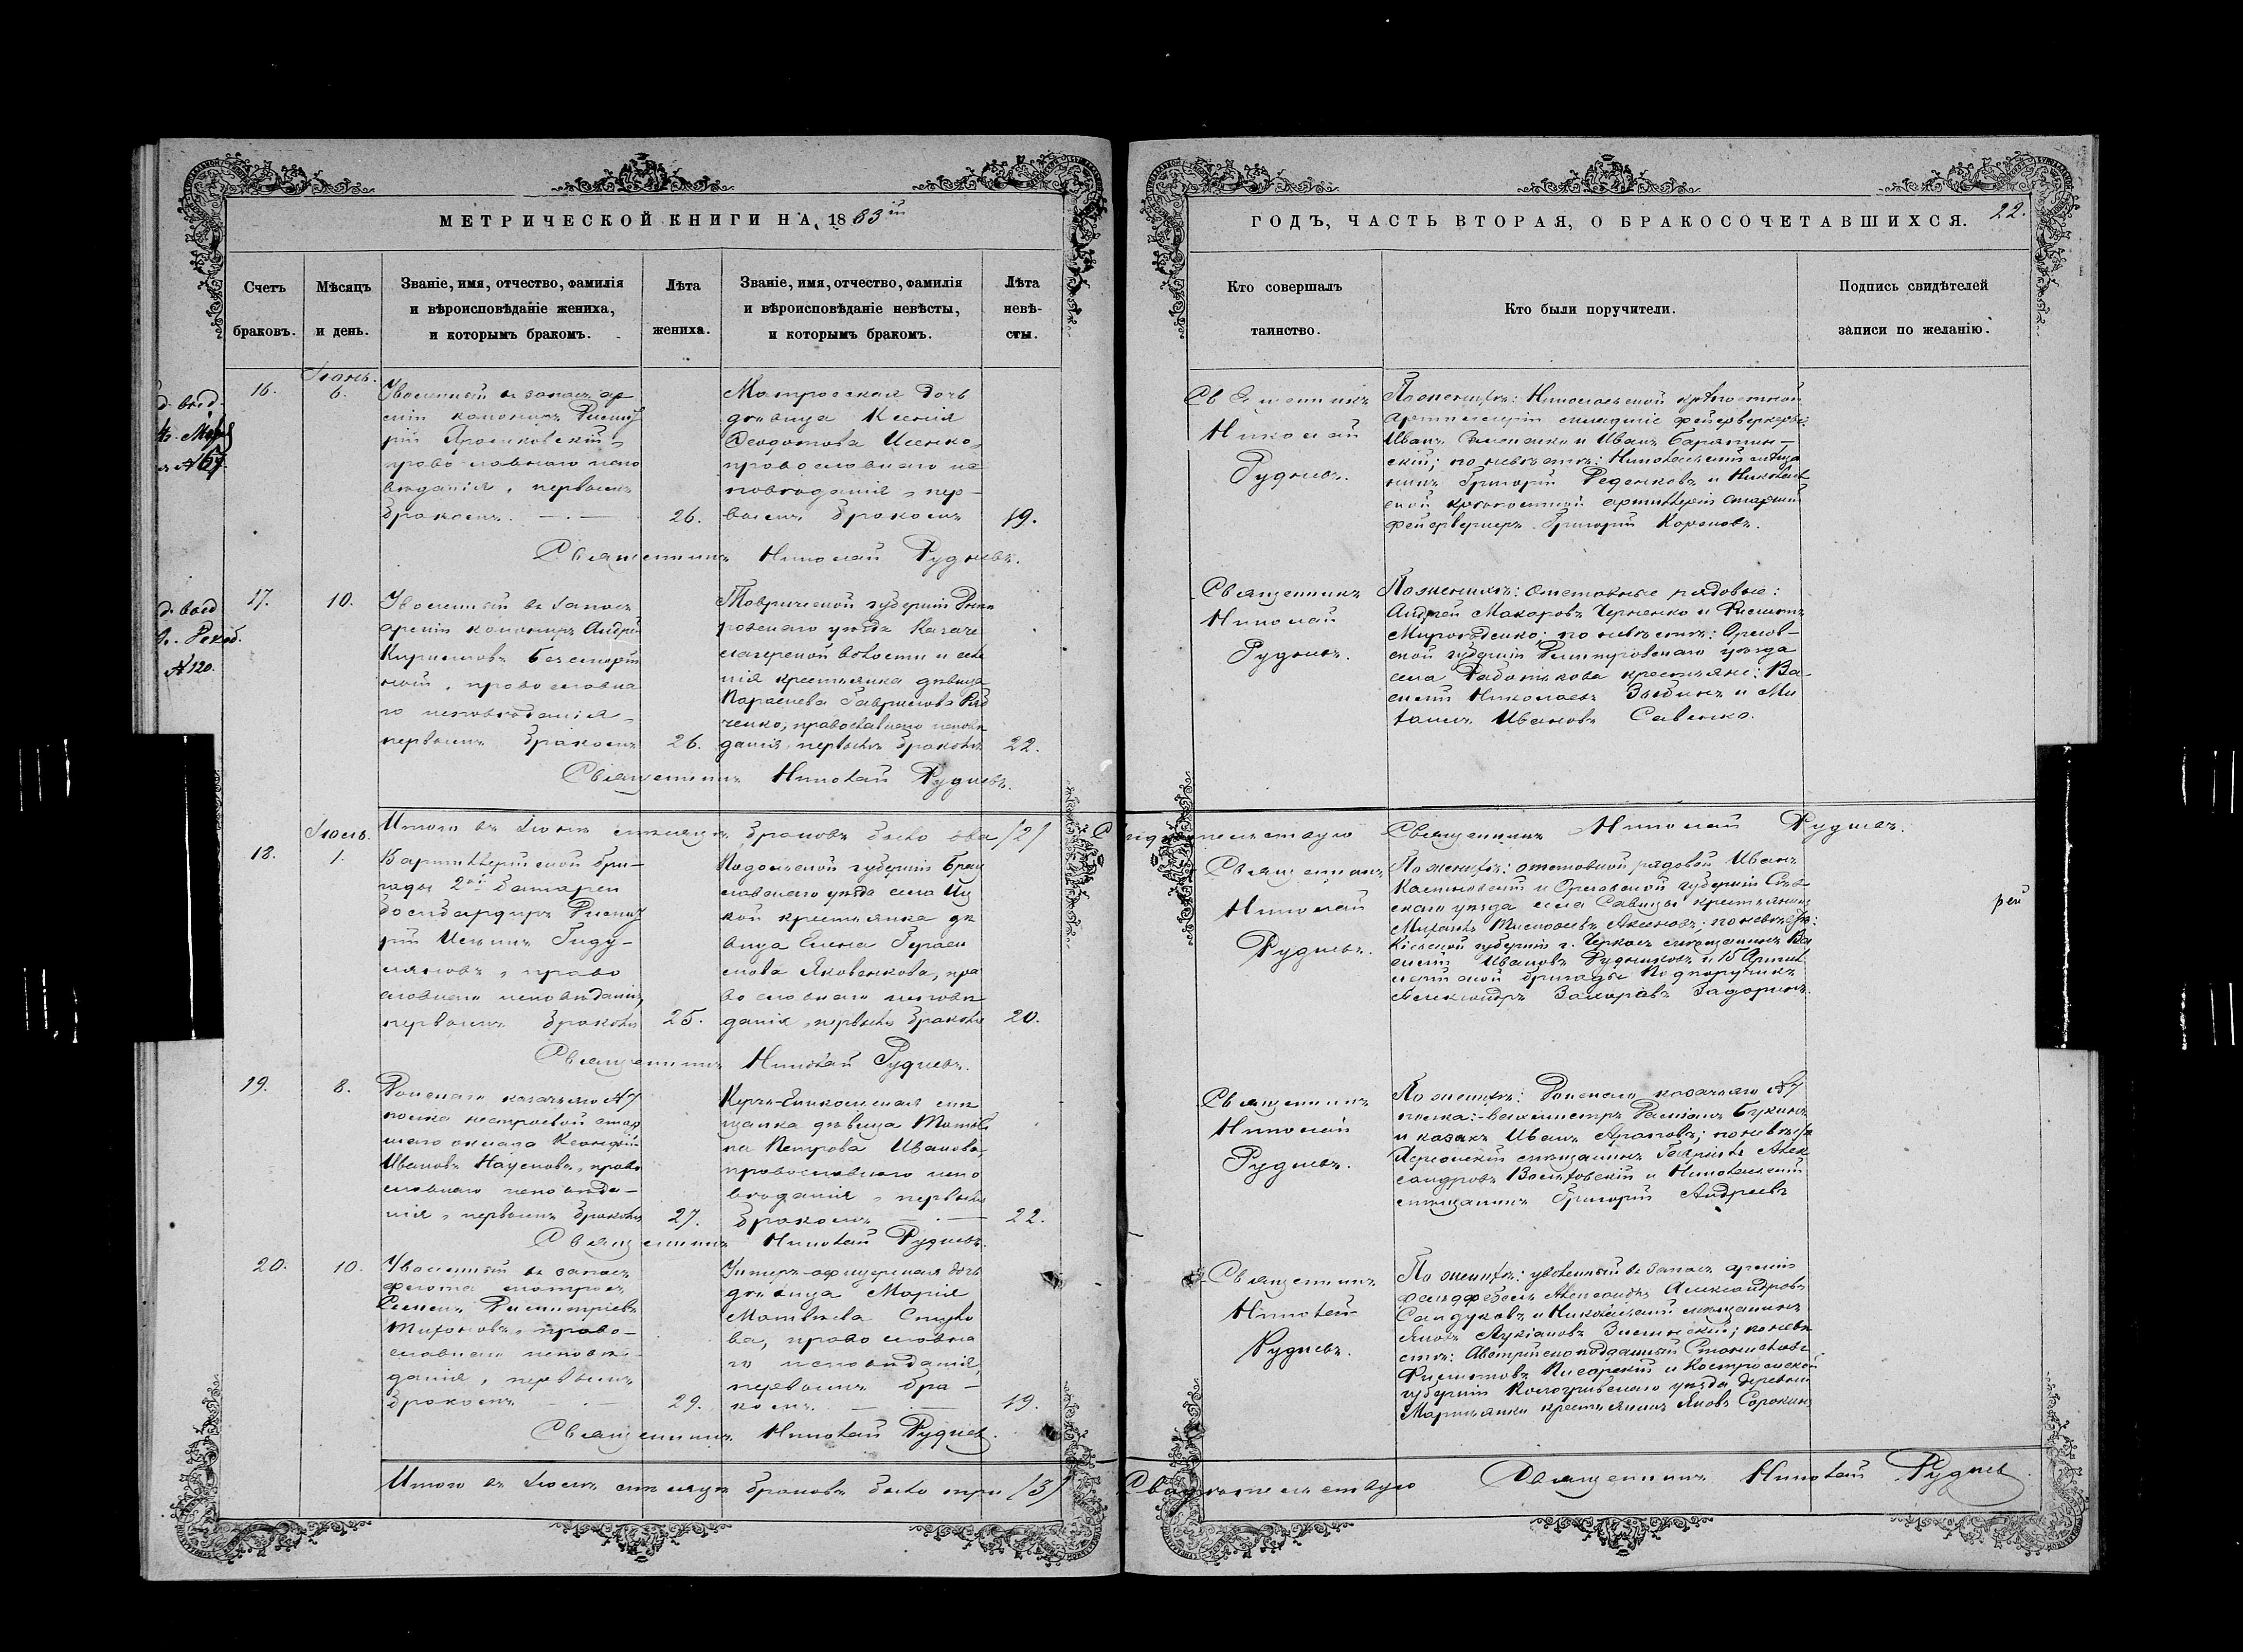 МЕТРИЧЕСКОЙ КНИГИ НА 1883ій
Счетъ браковъ.
Мѣсяцъ и день.
Званіе, имя, отчество, фамилія
и вѣроисповѣданіе жениха,
и которымъ бракомъ.
Лѣта
жениха.
Званіе, имя, отчество, фамилія
и вѣроисповѣданіе невѣсты,
и которымъ бракомъ.
Лѣта
невѣ-
сты.
16.
Іюнь.
6.
Уволенный въ запасъ ар
міи канониръ Димит
рій
православнаго испо
вѣданія, первымъ
бракомъ.
26.
Матросская дочь
дѣвица Ксенія
Ѳеодотова
православнаго ис
повѣданія, пер-
вымъ бракомъ
19.
Священникъ Николай Рудневъ.
№ 120.
17.
10.
Уволенный въ запасъ
арміи канониръ Андрей
Кириловъ
православна
го исповѣданія
первымъ бракомъ
26.
Таврической губерніи Днѣп
ровскаго уѣзда Казаче
лагерской волости и селе
нія крестьянка дѣвица
Параскева Гаврилова Ряб
ченко, православнаго исповѣ
данія, первымъ бракомъ
22.
Священникъ Николай Рудневъ.
Итого въ Іюнѣ мѣсяцѣ браковъ было два /2/
18.
Іюль.
1.
артиллерійской бри-
гады 2ой батареи
бомбардиръ Димит
рій
православнаго исповѣданія,
первымъ бракомъ
25.
Подольской губерніи Брац
лавскаго уѣзда села
крестьянка дѣ
вица Елена Гераси
мова Яковенкова, пра
вославнаго исповѣ
данія, первымъ бракомъ
20.
Священникъ Николай Рудневъ.
19.
8.
Донскаго казачьяго № 7
полка нестроевой стар
шаго оклада
Ивановъ Науменовъ, право
славнаго исповѣда-
нія, первымъ бракомъ
27.
Керчь-Еникольская мѣ
щанка дѣвица
Петрова Иванова
православнаго испо
вѣданія, первымъ
бракомъ
22.
Священникъ Николай Рудневъ.
20.
10.
Уволенный въ запасъ
флота матросъ
Семенъ Димитріевъ
Тихоновъ, право-
славнаго исповѣ-
данія, первымъ
бракомъ
29.
Унтеръ-офицерская дочь
дѣвица Марія
Матвѣева
православна
го исповѣданія
первымъ бра-
комъ
19.
Священникъ Николай Рудневъ.
Итого въ Іюлѣ мѣсяцѣ браковъ было три /3/
ГОДЪ, ЧАСТЬ ВТОРАЯ, О БРАКОСОЧЕТАВШИХСЯ.
22.
Кто совершалъ
таинство.
Кто были поручители.
Подпись свидѣтелей
записи по желанію.
Священникъ
Николай
Рудневъ.
По женихѣ: Николаевской крѣпостной
артиллеріи фейерверкеры:
Иванъ и Иванъ Барятин-
скій; по невѣстѣ: Николаевскій мѣща
нинъ Григорій Реденковъ и Николаев
ской крѣпостной артиллеріи старшій
фейерверкеръ Григорій Короповъ.
Священникъ
Николай
Рудневъ.
По женихѣ: отставные рядовые:
Андрей Макаровъ Черненко и Филиппъ
Мирогоденко; по невѣстѣ: Орлов-
ской губерніи Дмитровскаго уѣзда
села Работькова крестьяне: Ва-
силій Николаевъ и Ми
хаилъ Ивановъ Савенко.
Свидѣтельствую Священникъ Николай Рудневъ.
Священникъ
Николай
Рудневъ.
По женихѣ: отставной рядовой Иванъ
и Орловской губерніи Сѣв
скаго уѣзда села крестьянинъ
Михаилъ Аксеновъ; по невѣстѣ:
Кіевской губерніи г. Черкасъ мѣщанинъ Ва
силій Ивановъ Рудниковъ и 15 Артил
лерійской бригады Подпоручикъ
Александръ Захаровъ Задоринъ.
Священникъ
Николай
Рудневъ.
По женихѣ: Донскаго казачьяго № 7
полка: вахмистръ Букинъ
и казакъ Иванъ Араповъ; по невѣстѣ
Херсонскій мѣщанинъ Гавріилъ Алек
сандровъ и Николаевскій
мѣщанинъ Григорій Андреевъ
Священникъ
Николай
Рудневъ.
По женихѣ: уволенный въ запасъ арміи
фельдфебель Александръ Александровъ
Сандуковъ и Николаевскій мѣщанинъ
Яковъ Лукіановъ; по невѣ
стѣ: Австрійскоподданный Станиславъ
Филиповъ Писарскій и Костромской
губерніи Кологривскаго уѣзда деревни
крестьянинъ Яковъ Сорокинъ
Свидѣтельствую Священникъ Николай Рудневъ